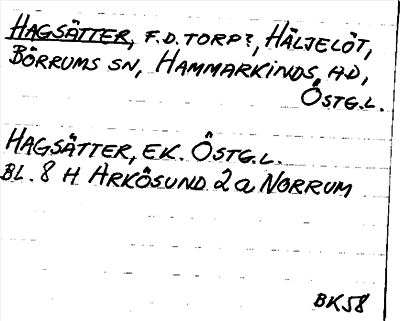 HAGSÄTTER, F.D. TORP?, HÄLJELÖT,
BÖRRUMS SN, HAMMARKINDS HD,
ÖSTG.L.
HAGSÄTTER, EK. ÖSTG.L.
BL. 8 H ARKÖSUND 2a NORRUM
BK58